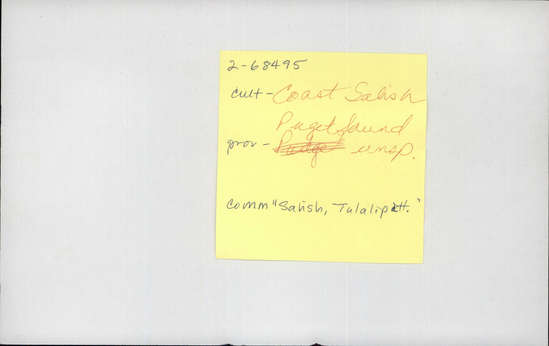 2-68495
cult- Coast Salish
Puget Sound
prov- unsp.
comm "Salish, Tulalip."